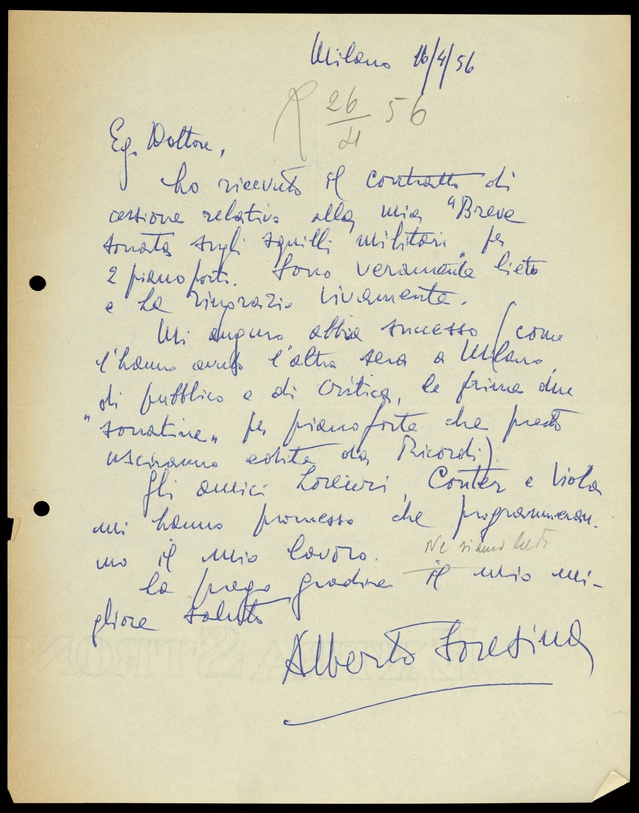 Milano 16/4/56
R 26/4 56
Eg. Dottore,
ho ricevuto il contratto di
cessione relativo alla mia "Breve
sonata sugli squilli militari" per
2 pianoforti. Sono veramente lieto
e La ringrazio vivamente.
Mi auguro abbia successo (come
l'hanno avuto l'altra sera a Milano,
di pubblico e di critica, le prime due
"sonatine" per pianoforte che presto
usciranno edite da Ricordi).
Gli amici Lorenzi, Conter e Viola
mi hanno promesso che programmeran-
no il mio lavoro.
Ne siamo lieti
La prego gradire il mio mi-
gliore saluto
Alberto Soresina
EXTRA STRONG